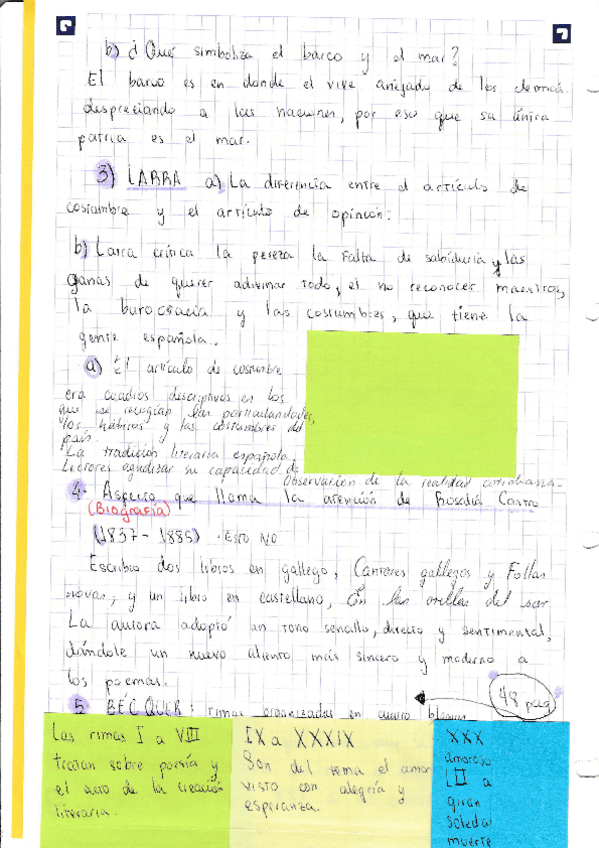 b) ¿Qué simboliza el barco y el mar?
El barco es en donde el vive alejado de los demás
despreciando a las naciones, por eso que su única
patria es el mar.
3) LARRA a) La diferencia entre el artículo de
costumbre y el artículo de opinión:
b) Larra critica la pereza la falta de sabiduría y las
ganas de querer adivinar todo, el no reconocer maestros,
la burocracia y las costumbres, que tiene la
gente española.
a) El artículo de costumbre
era cuadros descriptivos en los
que se recogían las particularidades,
los hábitos y las costumbres del
país.
La tradición literaria española
Lectores agudizar su capacidad de
observación de la realidad cotidiana.
4. Aspecto que llama la atención de Rosalía Castro
(Biografía)
(1837-1885) · ESTO NO
Escribio dos libros en gallego, Cantares gallegos y Follas
novas, y un libro en castellano, En las orillas del sar.
La autora adoptó un tono sencillo, directo y sentimental,
dándole un nuevo aliento más sincero y moderno a
los poemas.
48 pag
5 BECQUER: rimas organizadas en cuatro bloques
Las rimas I a VIII
tratan sobre poesía y
el acto de la creación
literaria.
IX a XXXIX
Son del tema el amor
visto con alegría y
esperanza.
XXX
amoroso
LII a
giran
soledad
muerte